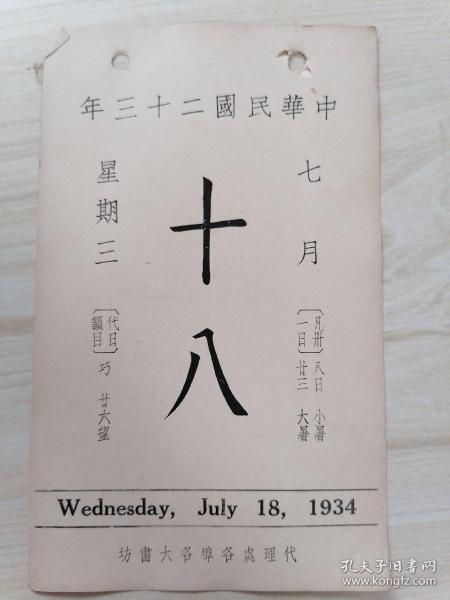 中華民國二十三年
七月
十八
星期三
〔凡卅一日〕
八日 小暑
廿三 大暑
〔代日韻目〕
巧 廿六望
Wednesday, July 18, 1934
代理處各埠各大書坊
孔夫子旧书网
www.kongfz.com